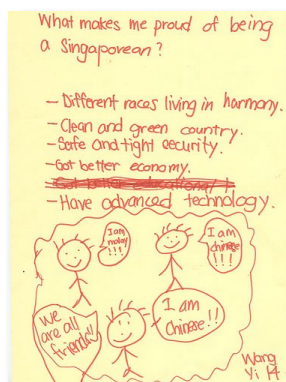 What makes me proud of being
a Singaporean?
- Different races living in harmony.
- Clean and green country.
- Safe and tight security.
- Got better economy.
- Have advanced technology.
I am
malay
!!!
I am
chinese
!!!
We
are all
friends!!
I am
Chinese!!
Wang
Yi